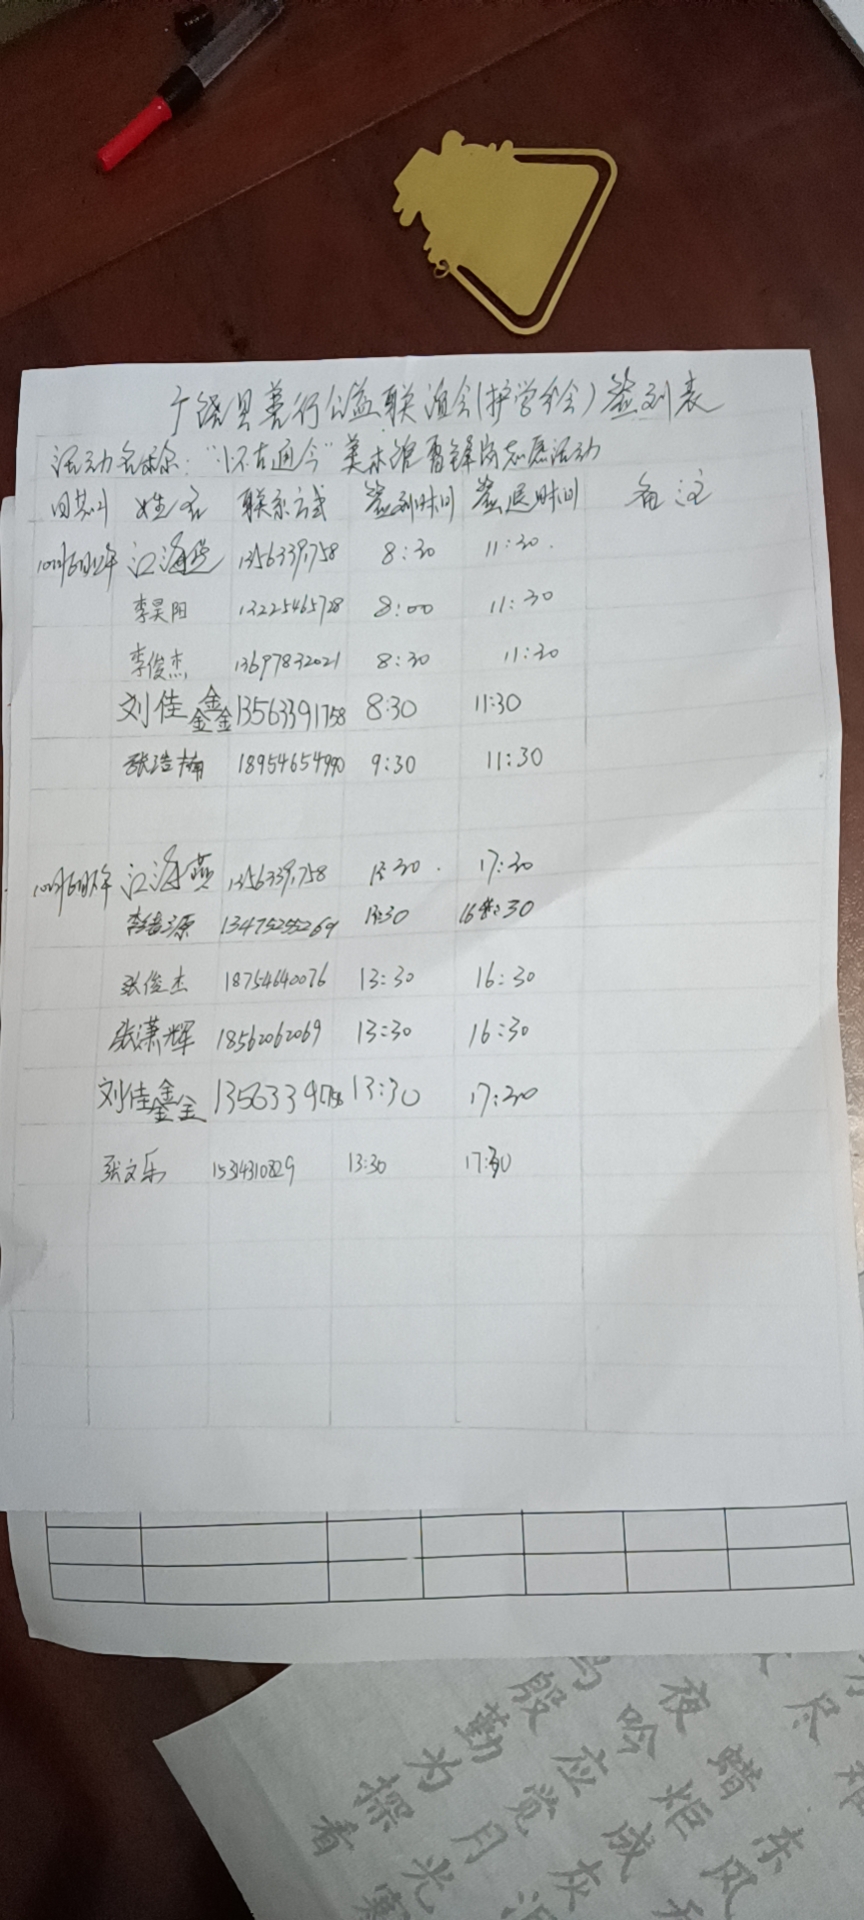 广饶县善行公益联谊会(护学分会)签到表
活动名称:“怀古通今”美术馆雷锋岗志愿活动
日期 姓名 联系方式 签到时间 签退时间 备注
10月6日上午 江海燕 13563391758 8:30 11:30.
李昊阳 13225465728 8:00 11:30
李俊杰 13697832021 8:30 11:30
刘佳鑫 13563391758 8:30 11:30
张浩楠 18954654990 9:30 11:30
10月6日下午 江海燕 13563391758 13:30. 17:30
李 源 13475255269 13:30 16:30
张俊杰 18754640076 13:30 16:30
张潇辉 18562062069 13:30 16:30
刘佳鑫 13563391758 13:30 17:30
张文乐 15314310829 13:30 17:30
夜 蜡 东
吟 炬 风
殷 应 成
勤 觉 灰
为 月
探 光
看 寒
尽